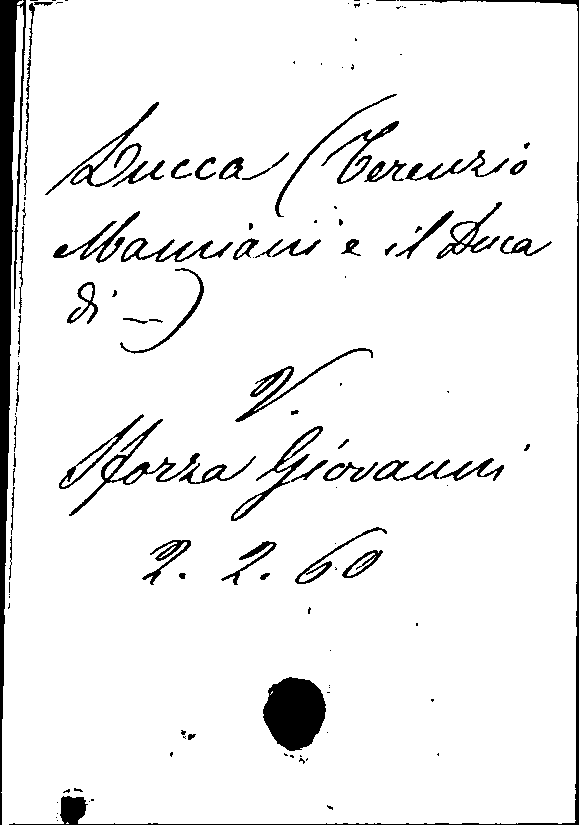 Lucca (Terenzio
Mamiani e il Duca
di —)
V.
Sforza Giovanni
2. 2. 60